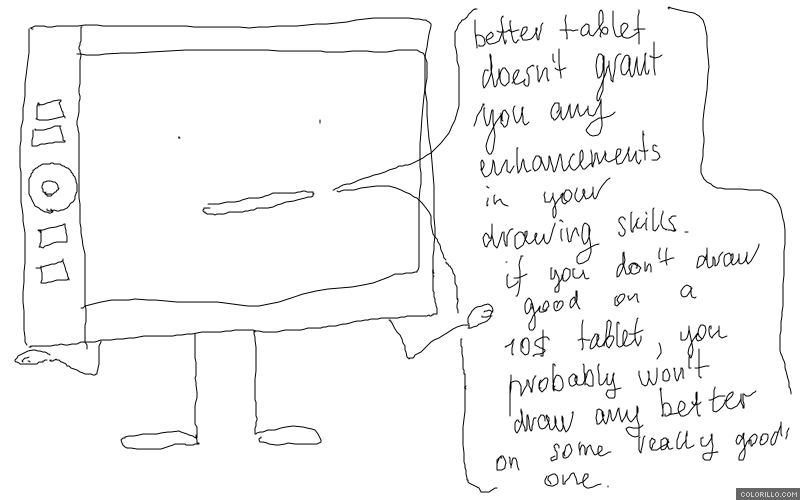 better tablet
doesn't grant
you any
enhancements
in your
drawing skills.
if you don't draw
good on a
10$ tablet, you
probably won't
draw any better
on some really good
one.
COLORILLO.COM